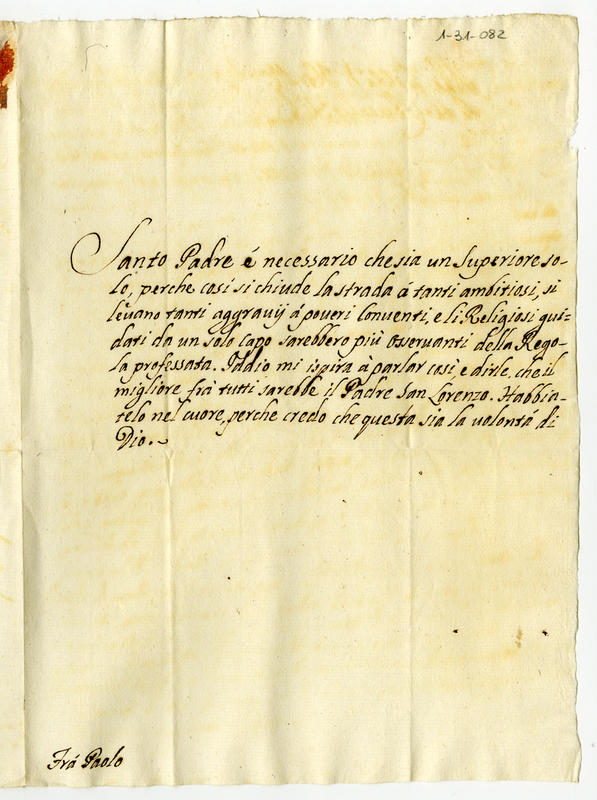 1-31-082
Santo Padre é necessario che sia un Superiore so-
lo, perche cosí si chiude la strada á tanti ambitiosi, si
lèvano tanti aggravij á poveri Conventi, e li Religiosi gui-
dati da un solo Capo sarebbero più osservanti della Rego-
la professata. Iddio mi ispira à parlar cosi, e dirle che il
migliore frà tutti sarebbe il Padre San Lorenzo. Habbia-
telo nel cuore, perche credo che questa sia la volontá di
Dio.
Frá Paolo